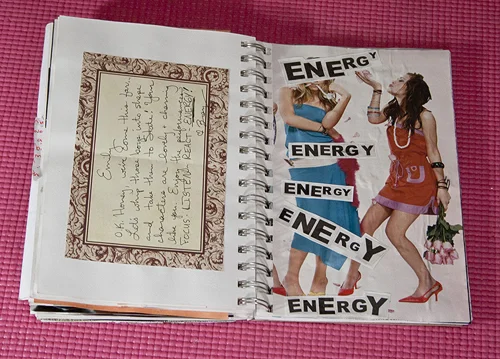 Emily,
OK. Honey, we've come this far.
Let's whip those boys into shape
and take them to State! Your
characters are lovely & charming
like you. Enjoy the performances.
FOCUS. LISTEN. REACT. ENERGY!
ENERGY
ENERGY
ENERGY
ENERGY
ENERGY